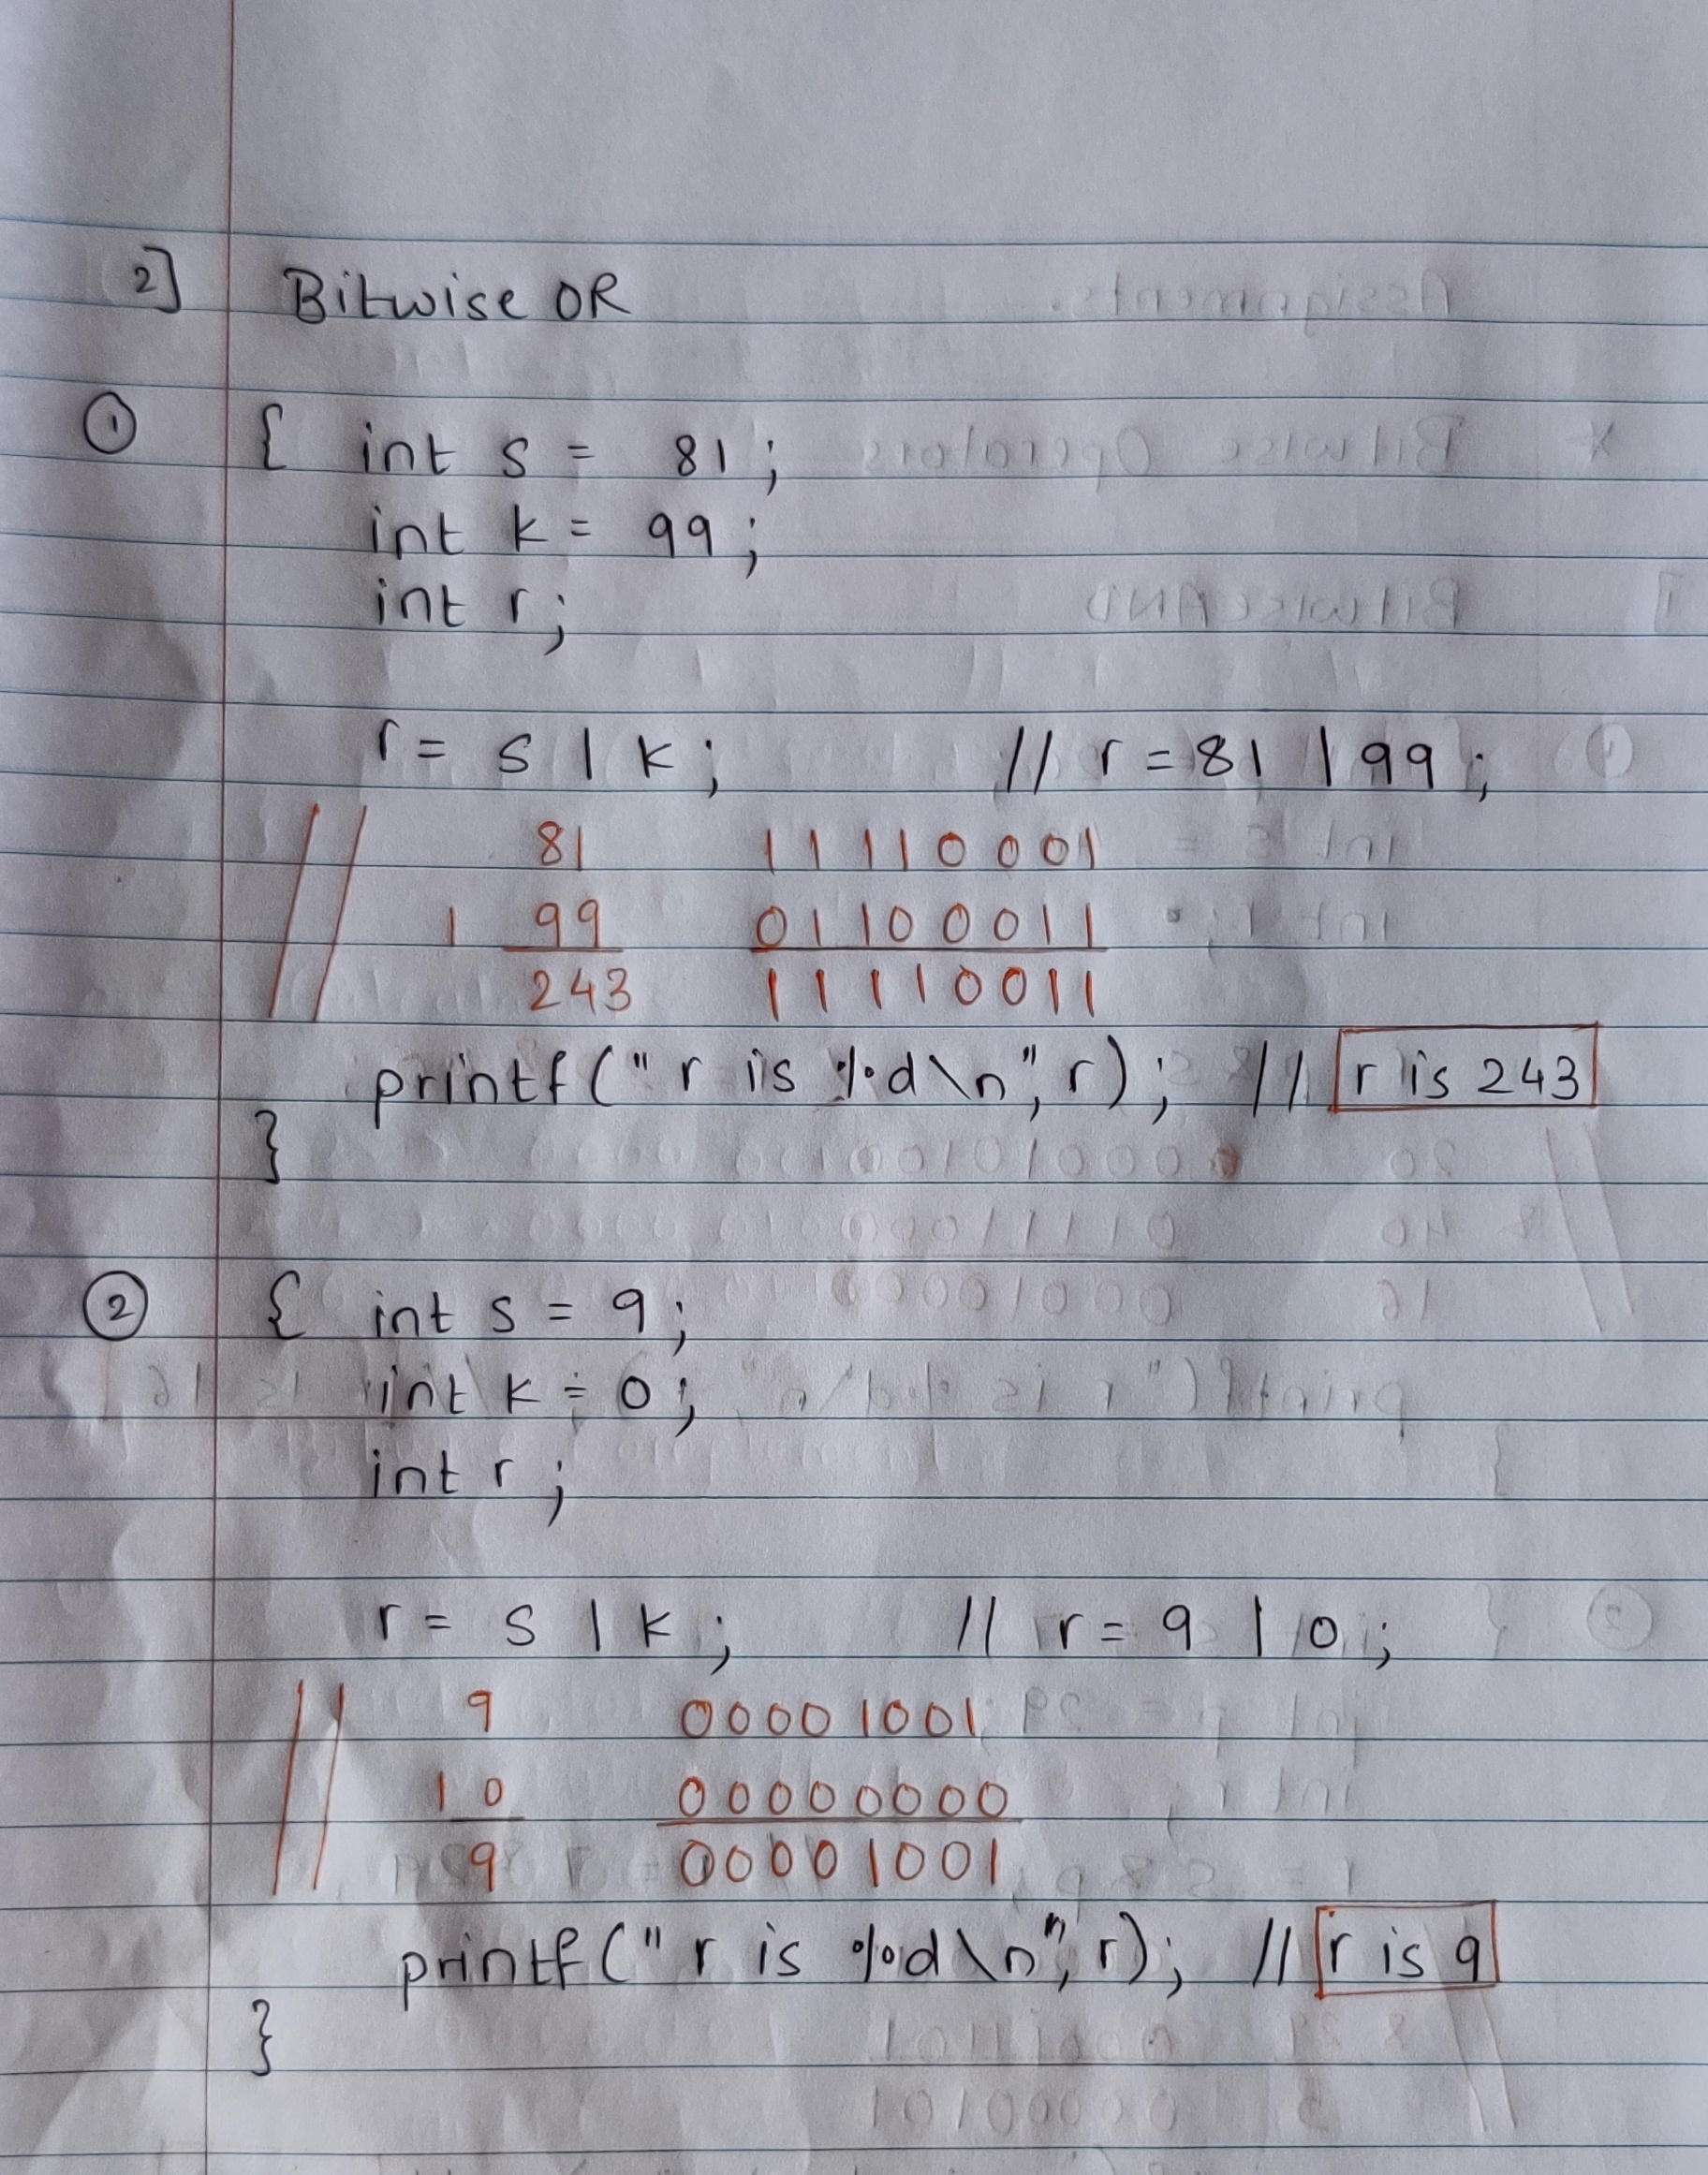 2] Bitwise OR
① { int s = 81;
int k = 99;
int r;
r = s | k; // r = 81 | 99;
// 81 11110001
| 99 01100011
243 11110011
printf("r is %d\n", r); // r is 243
}
② { int s = 9;
int k = 0;
int r;
r = s | k; // r = 9 | 0;
// 9 00001001
| 0 00000000
9 00001001
printf("r is %d\n", r); // r is 9
}